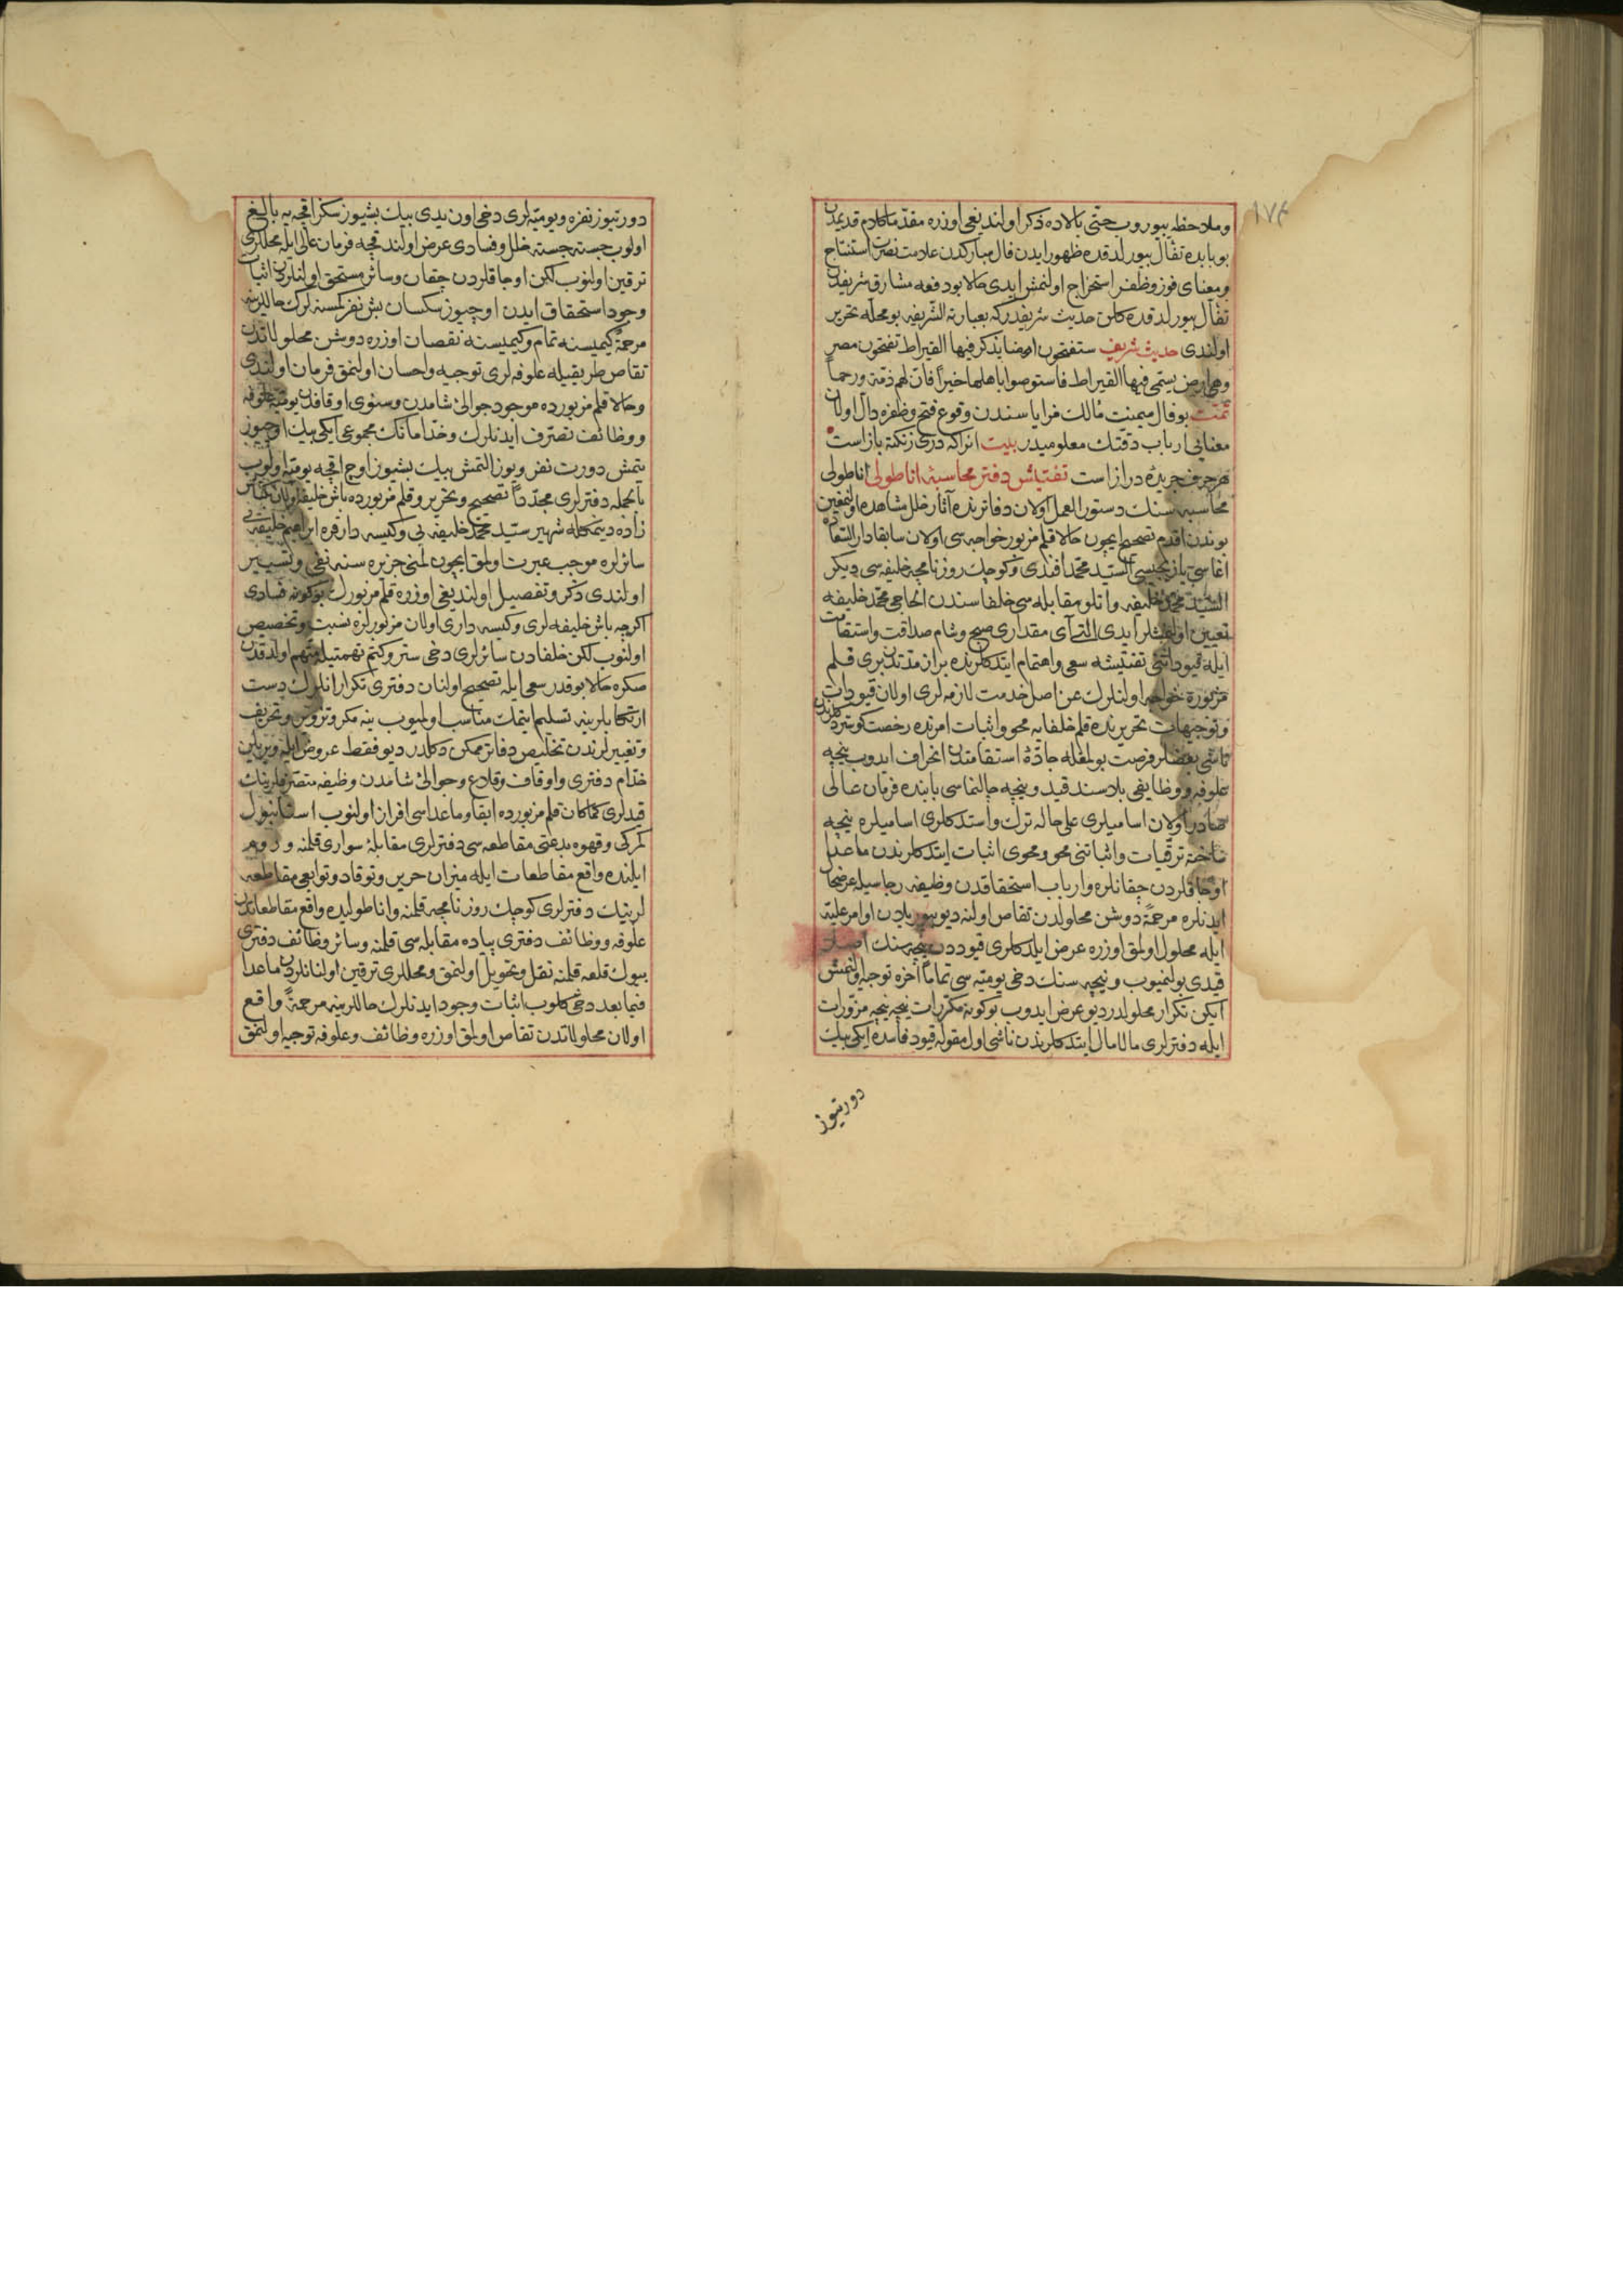 ١٧٤
وملاحظه بيوروب حتى بالاده ذكر اولنديغى اوزره مقدما كلام قديمدن
بو بابده تفأل بيورلدقده ظهور ايدن فال مباركدن علامت نصرت استنتاج
ومعناى فوز وظفر استخراج اولنمش ايدى حالا بو دفعه مشارق شريفدن
تفأل بيورلدقده كلن حديث شريفدركه بعبارته الشريفه بو محله تحرير
اولندى حديث شريف ستفتحون ارضا يذكر فيها القيراط تفتحون مصر
وهى ارض يسمى فيها القيراط فاستوصوا باهلها خيرا فان لهم ذمة ورحما
تمت بو فال ميمينت مآلك مزاياسندن وقوع فتح وظفره دال اولان
معنايى ارباب دقتك معلوميدر بيت انراكه درى زنكته بازاست
هر حرف جريده دراز است تفتيش دفتر محاسبۀ اناطولى اناطولى
محاسبه سنك دستور العمل اولان دفاترنده آثار خلل مشاهده اولنمغين
بوندن اقدم تصحيح ايچون حالا قلم مزبور خواجه سى اولان سابقا دار السعاده
اغاسى يازيجيسى السيد محمد افندى وكوچك روزنامچه خليفه سى ديكر
السيد محمد خليفه واتلو مقابله سى خلفاسندن الحاجى محمد خليفه
تعيين اولنمشلر ايدى التى آى مقدارى صبح وشام صداقت واستقامت
ايله قيوداتنى تفتيشه سعى واهتمام ايتدكلرنده بر ان مدتدن برى قلم
مزبوره خواجه اولنلرك عن اصل خدمت لازمه لرى اولان قيودات
وتوجيهات تحريرنده قلم خلفايه محو واثبات امرنده رخصت كوستردكلرندن
ناشى بعضلر فرصت بولمغله جادۀ استقامتدن انحراف ايدوب نيچه
علوفه ووظايفى بلا سند قيد ونيچه حالنماسى بابنده فرمان عالى
صادر اولان اساميلرى على حاله ترك واستدكلرى اساميلره نيچه
ساخته ترقيات واثباتنى محو ومحوى اثبات ايتدكلرندن ماعدا
اوجاقلردن چقانلره وارباب استحقاقدن وظيفه رجاسيله عرضحال
ايدنلره مرحمة دوشن محلولدن تقاص اولنه ديو بيوريلان اوامر عليه
ايله محلول اولمق اوزره عرض ايلدكلرى قيوددن نيچه سنك اصلا
قيدى بولنميوب ونيچه سنك دخى يوميه سى تماما آخره توجيه اولنمش
ايكن تكرار محلولدر ديو عرض ايدوب بوكونه مكررات نيچه نيچه مزورات
ايله دفترلرى مالامال ايتدكلرندن ناشى اول مقوله قيود فاسده ايكى بيك
دورتيوز
دورتيوز نفره ويوميه لرى دخى اون يدى بيك بشيوز سكز اقچه يه بالغ
اولوب جسته جسته خلل وفسادى عرض اولندقچه فرمان عالى ايله محللرى
ترقين اولنوب لكن اوجاقلردن چقان وسائر مستحق اولنلردن اثبات
وجود استحقاق ايدن اوچيوز سكسان بش نفر كمسنه لرك حاللرينه
مرحمة كيميسنه تمام وكيميسنه نقصان اوزره دوشن محلولاتدن
تقاص طريقيله علوفه لرى توجيه واحسان اولنمق فرمان اولندى
وحالا قلم مزبورده موجود حوالئ شامدن وسنوى اوقافدن يوميه علوفه
ووظائف تصرف ايدنلرك وخدامانك مجموعى ايكى بيك اوچيوز
يتمش دورت نفر ويوز التمش بيك بشيوز اوچ اقچه يوميه اولوب
بالجمله دفترلرى مجددا تصحيح وتحرير وقلم مزبورده باش خليفه اولان
زاده ديمكله شهير سيد محمد خليفه يى وكيسه دار قره ابراهيم خليفه يى
سائرلره موجب عبرت اولمق ايچون لمنى جزيره سنه نفى وتسيير
اولندى ذكر وتفصيل اولنديغى اوزره قلم مزبورك بو كونه فسادى
اكرچه باش خليفه لرى وكيسه دارى اولان مزبورلره نسبت وتخصيص
اولنوب لكن خلفادن سائرلرى دخى ستر وكتم تهمتيله متهم اولدقدن
صكره حالا بو قدر سعى ايله تصحيح اولنان دفترى تكرار انلرك دست
ارتكابلرينه تسليم ايتمك مناسب اولميوب ينه مكر وتزوير وتحريف
وتغييرلرندن تخليص دفاتر ممكن دكلدر ديو فقط عروض ايله ويريلن
خدام دفترى واوقاف وقلاع وحوالئ شامدن وظيفه متصرفلرينك
قيدلرى كماكان قلم مزبورده ابقا وماعداسى افراز اولنوب استانبول
كمركى وقهوه بدعتى مقاطعه سى دفترلرى مقابلۀ سوارى قلمنه وروم
ايلنده واقع مقاطعات ايله ميزان حرير وتوقاد وتوابعى مقاطعه
لرينك دفترلرى كوچك روزنامچه قلمنه واناطوليده واقع مقاطعاتدن
علوفه ووظائف دفترى پياده مقابله سى قلمنه وسائر وظائف دفترى
بيوك قلعه قلمنه نقل وتحويل اولنمق ومحللرى ترقين اولنانلردن ماعدا
فيما بعد دخى كلوب اثبات وجود ايدنلرك حاللرينه مرحمة واقع
اولان محلولاتدن تقاص اولمق اوزره وظائف وعلوفه توجيه اولنمق